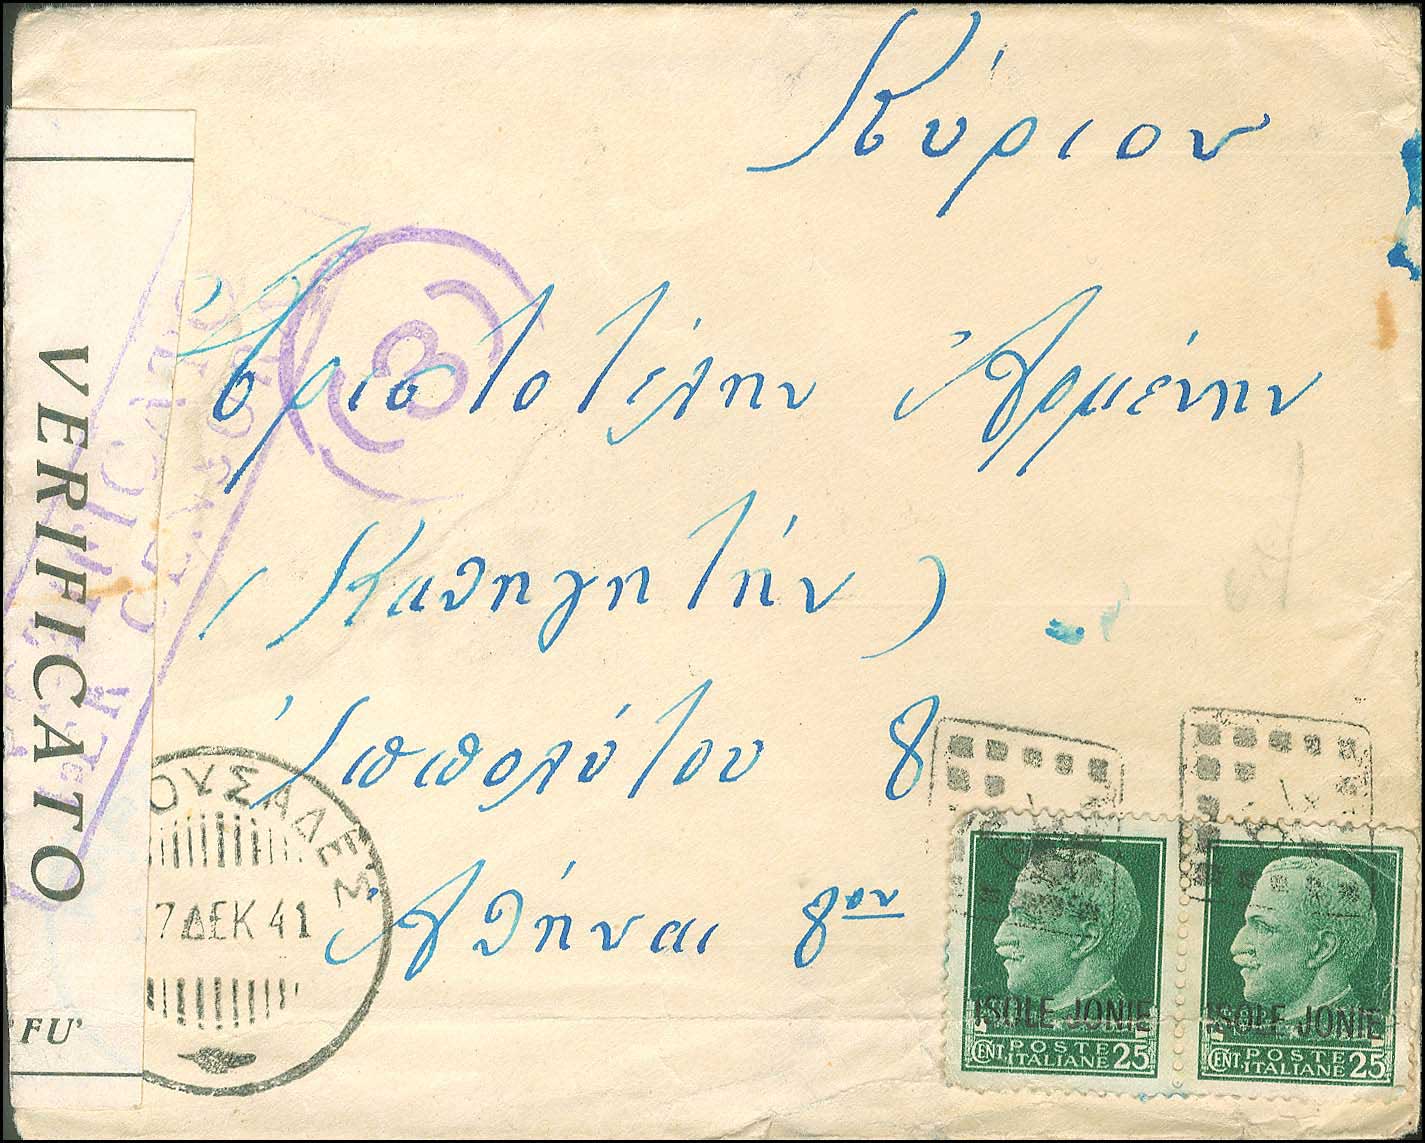 Κύριον
Ἀριστοτέλην Ἀρμένην
(Καθηγητήν)
Ἱππολύτου 8
Ἀθήναι 8ον
VERIFICATO
FU'
3
ΟΥΣΑΔΕΣ
7 ΔΕΚ 41
ISOLE JONIE
CENT. POSTE ITALIANE 25
ISOLE JONIE
CENT. POSTE ITALIANE 25